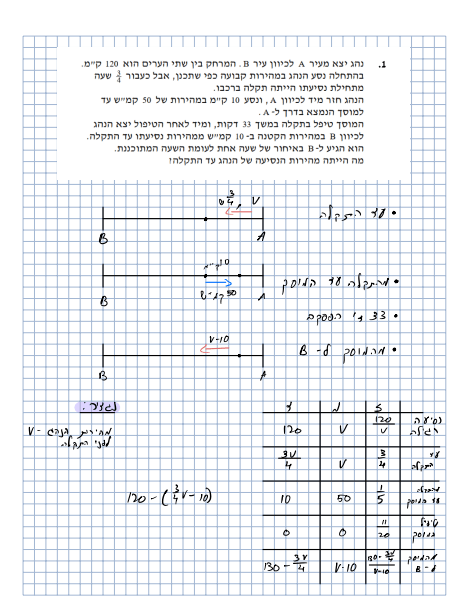 1. נהג יצא מעיר A לכיוון עיר B. המרחק בין שתי הערים הוא 120 ק"מ.
בהתחלה נסע הנהג במהירות קבועה כפי שתכנן, אבל כעבור 3/4 שעה
מתחילת נסיעתו הייתה תקלה ברכבו.
הנהג חזר מיד לכיוון A, ונסע 10 ק"מ במהירות של 50 קמ"ש עד
למוסך הנמצא בדרך ל- A.
המוסך טיפל בתקלה במשך 33 דקות, ומיד לאחר הטיפול יצא הנהג
לכיוון B במהירות הקטנה ב- 10 קמ"ש ממהירות נסיעתו עד התקלה.
הוא הגיע ל- B באיחור של שעה אחת לעומת השעה המתוכננת.
מה הייתה מהירות הנסיעה של הנהג עד התקלה?
3/4 ש V
• עד התקלה
B A
10 ק"מ
• מהתקלה עד המוסך
50 קמ"ש
B A
• 33 דק' הפסקה
V-10
• מהמוסך ל- B
B A
נגדיר:
V - מהירות הנהג
לפני התקלה
120 - (3/4 V - 10)
נסיעה רגילה 120/V V 120
עד התקלה 3/4 V 3V/4
מהתקלה עד המוסך 1/5 50 10
במוסך 11/20 0 0
מהמוסך ל- B (130 - 3V/4)/(V-10) V-10 130 - 3V/4